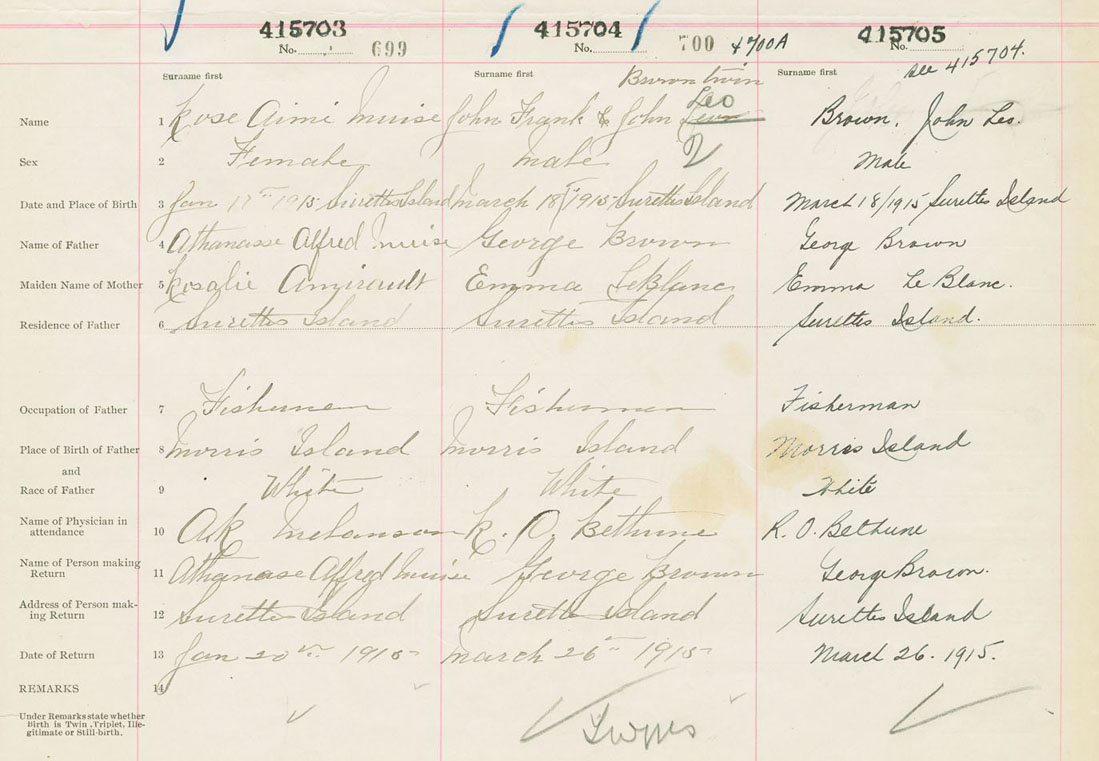 415703 415704 415705
No. 699 No. 700 & 700A No.
see 415704.
Surname first Surname first Surname first
Brown twin
Leo
Name 1 Rose Aimi Muise John Frank & John Brown, John Leo.
Sex 2 Female Male 2 Male
Date and Place of Birth 3 Jan 17th 1915 Surettes Island March 18 1915 Surettes Island March 18/1915 Surettes Island
Name of Father 4 Athanasse Alfred Muise George Brown George Brown
Maiden Name of Mother 5 Rosalie Amirault Emma LeBlanc Emma Le Blanc.
Residence of Father 6 Surettes Island Surettes Island Surettes Island.
Occupation of Father 7 Fisherman Fisherman Fisherman
Place of Birth of Father 8 Morris Island Morris Island Morris Island
and
Race of Father 9 White White White
Name of Physician in
attendance 10 A.R. Melanson R. O. Bethune R. O. Bethune
Name of Person making
Return 11 Athanase Alfred Muise George Brown George Brown.
Address of Person mak-
ing Return 12 Surette Island Surette Island Surettes Island
Date of Return 13 Jan 20th 1915 March 26th 1915 March 26. 1915.
REMARKS 14
Under Remarks state whether
Birth is Twin, Triplet, Ille-
gitimate or Still-birth.